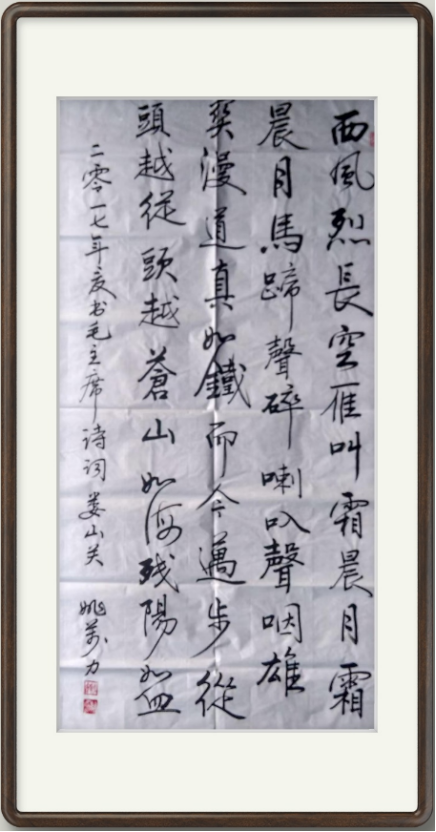 西風烈長空雁叫霜晨月霜
晨月馬蹄聲碎喇叭聲咽雄
关漫道真如鐵而今邁步從
頭越從頭越蒼山如海残陽如血
二零一七年夏书毛主席诗词娄山关 姚萬力